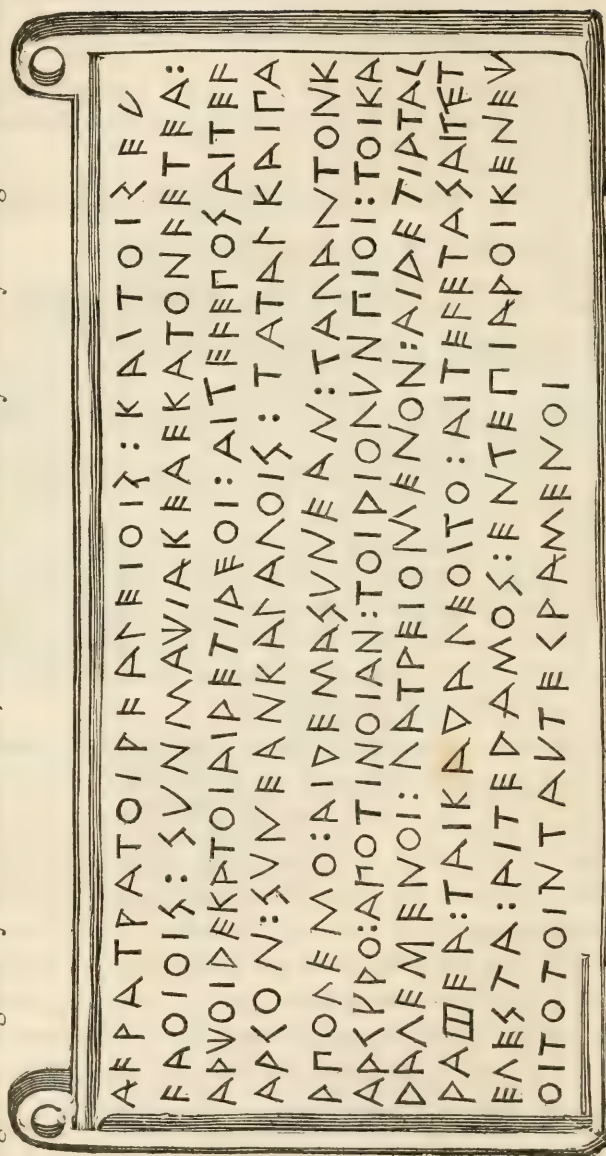 ΑϜΡΑΤΡΑΤΟΙΡϜΑΛΕΙΟΙΣ:ΚΑΙΤΟΙΣΕΥ
ϜΑΟΙΟΙΣ:ΣΥΝΜΑΧΙΑΚΕΑΕΚΑΤΟΝϜΕΤΕΑ:
ΑΡΧΟΙΔΕΚΑΤΟΙΑΙΔΕΤΙΔΕΟΙ:ΑΙΤΕϜΕΠΟΣΑΙΤΕϜ
ΑΡΓΟΝ:ΣΥΝΕΑΝΚΑΛΑΛΟΙΣ:ΤΑΤΑΛΚΑΙΠΑ
ΡΠΟΛΕΜΟ:ΑΙΔΕΜΑΣΥΝΕΑΝ:ΤΑΛΑΝΤΟΝΚ
ΑΡΓΥΡΟ:ΑΠΟΤΙΝΟΙΑΝ:ΤΟΙΔΙΟΛΥΝΠΙΟΙ:ΤΟΙΚΑ
ΔΑΛΕΜΕΝΟΙ:ΛΑΤΡΕΙΟΜΕΝΟΝ:ΑΙΔΕΤΙΡΤΑΓ
ΡΑΦΕΑ:ΤΑΙΚΑΔΑΛΕΟΙΤΟ:ΑΙΤΕϜΕΤΑΣΑΙΤΕΤ
ΕΛΕΣΤΑ:ΑΙΤΕΔΑΜΟΣ:ΕΝΤΕΠΙΑΡΟΙΚΕΝΕΧ
ΟΙΤΟΤΟΙΝΤΑΥΤΕΓΡΑΜΕΝΟΙ